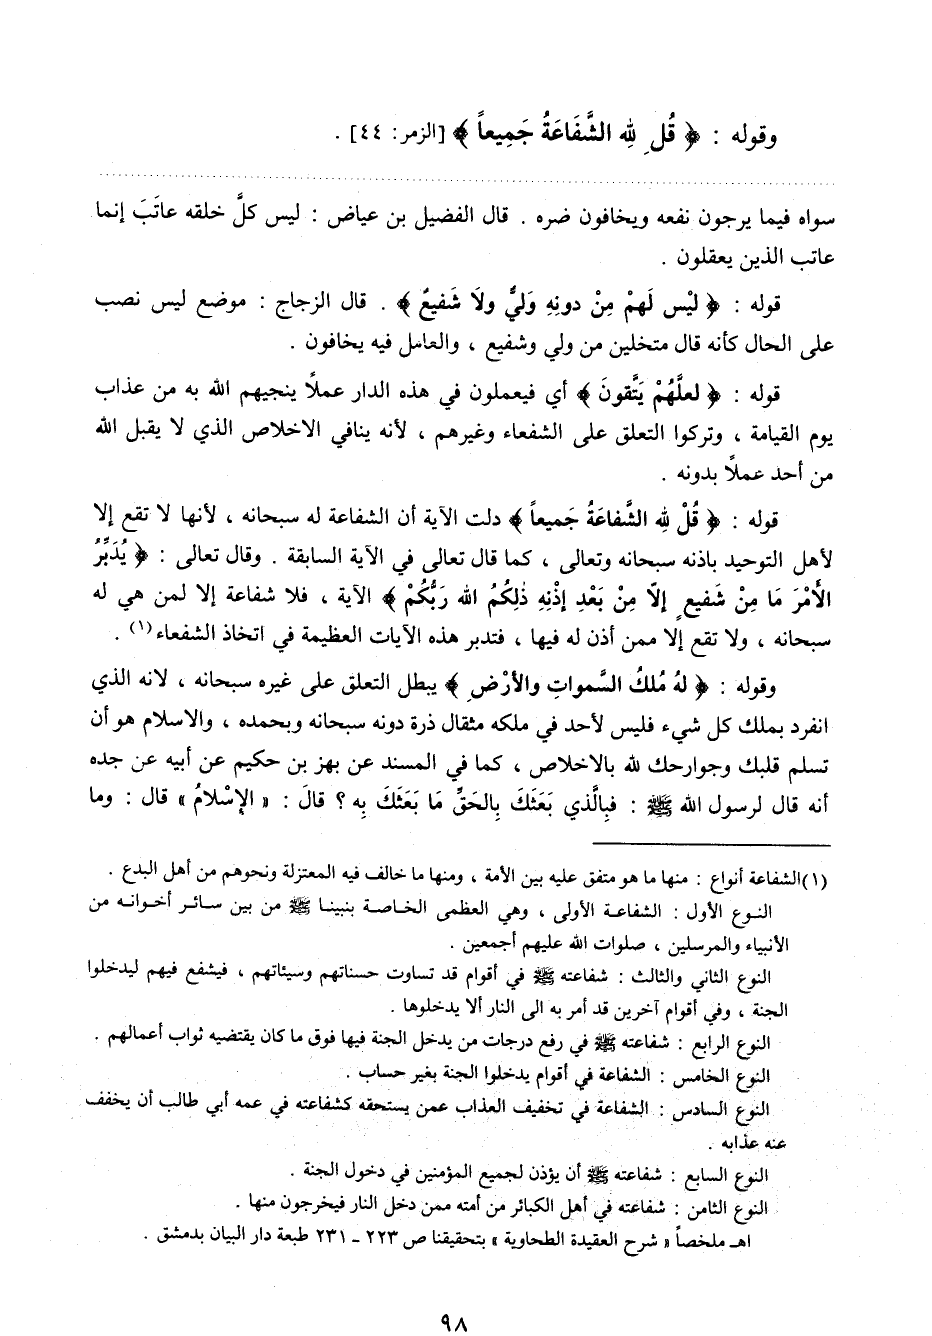 وقوله : ﴿ قُل ِ لله الشَّفَاعَةُ جَمِيعاً ﴾ [الزمر: ٤٤] .
سواه فيما يرجون نفعه ويخافون ضره . قال الفضيل بن عياض : ليس كلَّ خلقه عاتَبَ إنما
عاتب الذين يعقلون .
قوله : ﴿ ليْس لَهمْ مِنْ دونِهِ وَليٌّ ولاَ شَفيعٌ ﴾ . قال الزجاج : موضع ليس نصب
على الحال كأنه قال متخلين من ولي وشفيع ، والعامل فيه يخافون .
قوله : ﴿ لعلَّهُمْ يَتَّقونَ ﴾ أي فيعملون في هذه الدار عملاً ينجيهم الله به من عذاب
يوم القيامة ، وتركوا التعلق على الشفعاء وغيرهم ، لأنه ينافي الاخلاص الذي لا يقبل الله
من أحد عملاً بدونه .
قوله : ﴿ قُلْ لله الشَّفاعَةُ جَميعاً ﴾ دلت الآية أن الشفاعة له سبحانه ، لأنها لا تقع إلا
لأهل التوحيد باذنه سبحانه وتعالى ، كما قال تعالى في الآية السابقة . وقال تعالى : ﴿ يُدَبِّرُ
الأَمْرَ مَا مِنْ شَفيعٍ إلّا مِنْ بَعْدِ إذْنِهِ ذٰلِكُمُ الله رَبُّكُمْ ﴾ الآية ، فلا شفاعة إلا لمن هي له
سبحانه ، ولا تقع إلا ممن أذن له فيها ، فتدبر هذه الآيات العظيمة في اتخاذ الشفعاء(١) .
وقوله : ﴿ لهُ مُلكُ السَّمواتِ والأرْضِ ﴾ يبطل التعلق على غيره سبحانه ، لانه الذي
انفرد بملك كل شيء فليس لأحد في ملكه مثقال ذرة دونه سبحانه وبحمده ، والاسلام هو أن
تسلم قلبك وجوارحك لله بالاخلاص ، كما في المسند عن بهز بن حكيم عن أبيه عن جده
أنه قال لرسول الله ﷺ : فبِالَّذي بَعَثَكَ بِالحَقِّ مَا بَعَثَكَ بِه ؟ قالَ : « الإسْلامُ » قال : وما
(١)الشفاعة أنواع : منها ما هو متفق عليه بين الأمة ، ومنها ما خالف فيه المعتزلة ونحوهم من أهل البدع .
النوع الأول : الشفاعة الأولى ، وهي العظمى الخاصة بنبينا ﷺ من بين سائر أخوانه من
الأنبياء والمرسلين ، صلوات الله عليهم أجمعين .
النوع الثاني والثالث : شفاعته ﷺ في أقوام قد تساوت حسناتهم وسيئاتهم ، فيشفع فيهم ليدخلوا
الجنة ، وفي أقوام آخرين قد أمر به الى النار ألا يدخلوها .
النوع الرابع : شفاعته ﷺ في رفع درجات من يدخل الجنة فيها فوق ما كان يقتضيه ثواب أعمالهم .
النوع الخامس : الشفاعة في أقوام يدخلوا الجنة بغير حساب .
النوع السادس : الشفاعة في تخفيف العذاب عمن يستحقه كشفاعته في عمه أبي طالب أن يخفف
عنه عذابه .
النوع السابع : شفاعته ﷺ أن يؤذن لجميع المؤمنين في دخول الجنة .
النوع الثامن : شفاعته في أهل الكبائر من أمته ممن دخل النار فيخرجون منها .
اهـ ملخصاً « شرح العقيدة الطحاوية » بتحقيقنا ص ٢٢٣ - ٢٣١ طبعة دار البيان بدمشق .
٩٨